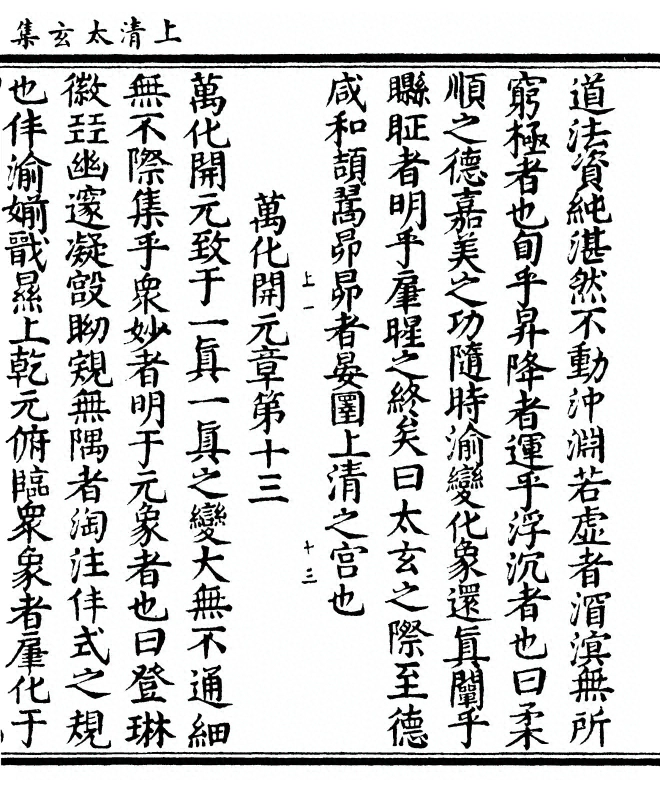 上清太玄集
道法資純湛然不動沖淵若虛者湏溟無所
窮極者也旬乎昇降者運乎浮沉者也曰柔
順之德嘉美之功隨時渝變化象還眞闡乎
者明乎之終矣曰太玄之際至德
咸和頡昴昴者晏圍上清之宫也
上一
十三
萬化開元章第十三
萬化開元致于一眞一眞之變大無不通細
無不際集乎衆妙者明于元象者也曰登琳
徽幽邃凝無隅者淘注佯式之規
也佯渝上乾元俯臨衆象者化于